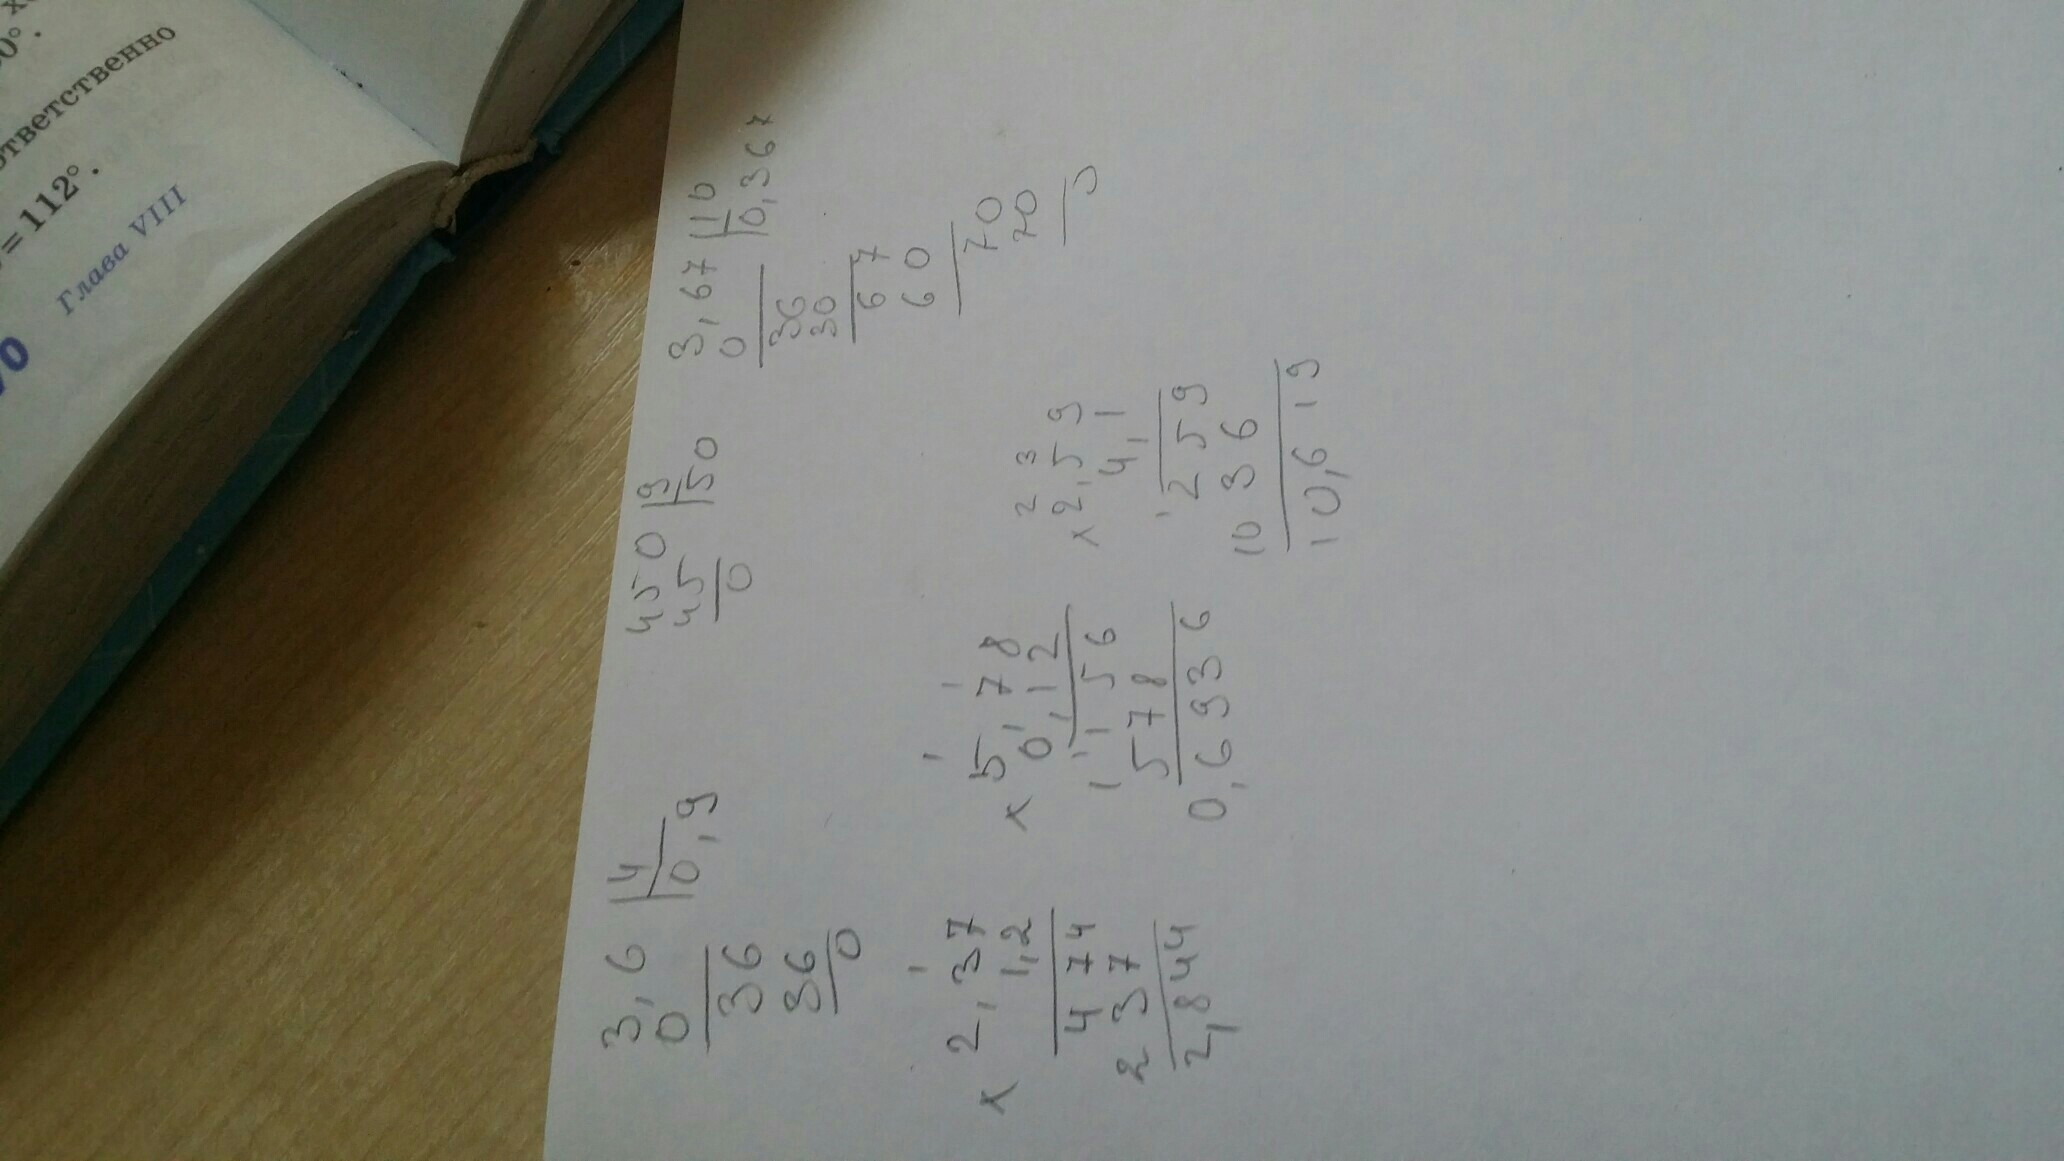 0°.
ответственно
= 112°.
Глава VIII
3,6 | 4
0 | 0,9
36
36
0
450 | 9
45 | 50
0
3,67 | 10
0 | 0,367
36
30
67
60
70
70
0
1
× 2,37
1,2
4 74
2 37
2,844
1 1
× 5,78
0,12
1 1 56
5 78
0,6936
2 3
× 2,59
4,1
2 59
10 3 6
10,6 19